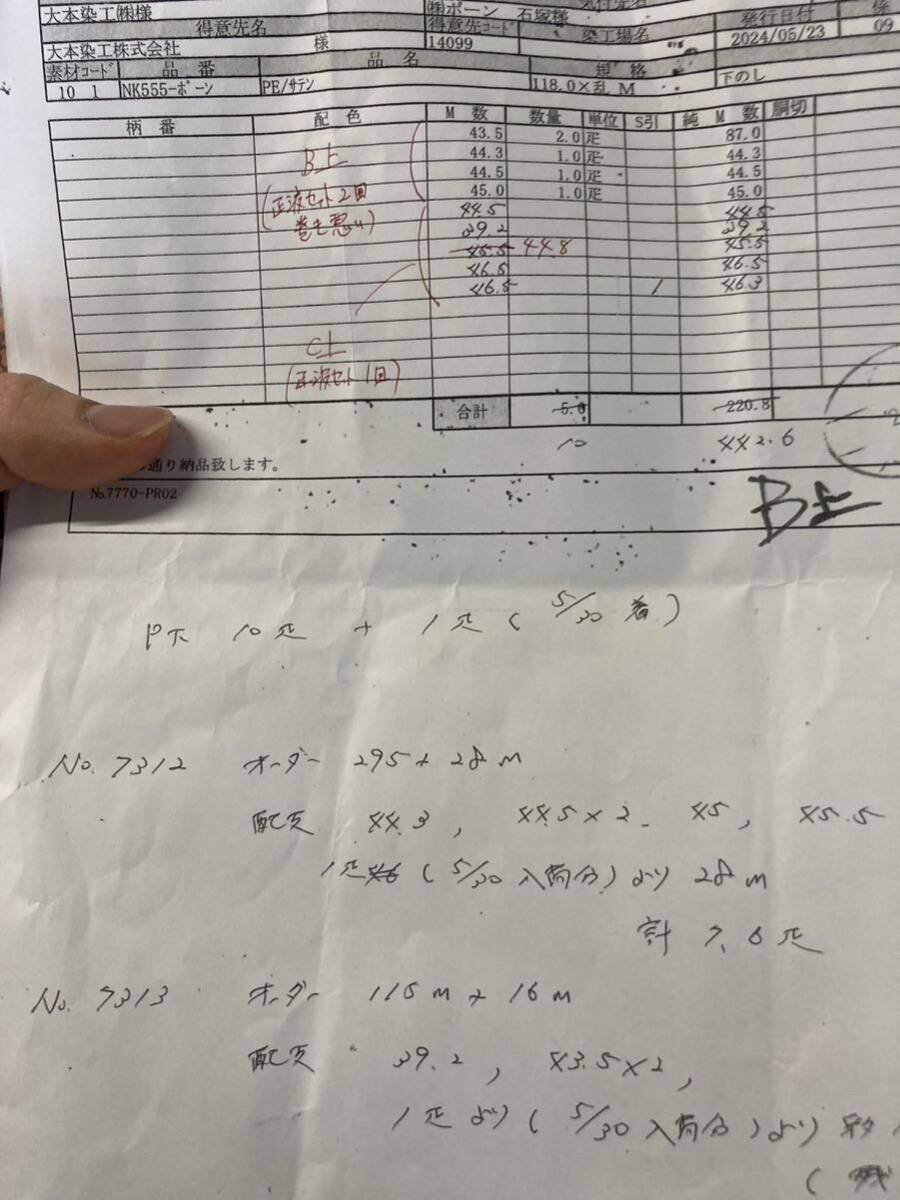 大本染工㈱様 ㈱ボーン 石塚様 発行日付
得意先名 得意先コード 染工場名 2024/05/23 09
大本染工株式会社 様 14099
素材コード 品番 品名 規格 下のし
10 1 NK555-ボーン PE/サテン 118.0×乱 M
柄番 配色 M数 数量 単位 S引 純 M数 胴切
43.5 2.0 疋 87.0
B上 44.3 1.0 疋 44.3
44.5 1.0 疋 44.5
(正液セット2回 45.0 1.0 疋 45.0
巻き悪い) 44.5 44.5
39.2 39.2
45.5 44.8 45.5
46.5 46.5
46.5 1 46.3
C上
(正液セット1回)
合計 5.0 220.8
10 442.6
通り納品致します。
No.7770-PR02
B上
P下 10疋 + 1疋(5/30着)
No. 7312 オーダー 295+28m
配疋 44.3, 44.5×2. 45, 45.5
1疋 (5/30入荷分)より28m
計7.6疋
No. 7313 オーダー 116m+16m
配疋 39.2, 43.5×2,
1疋より(5/30入荷分)より
(残